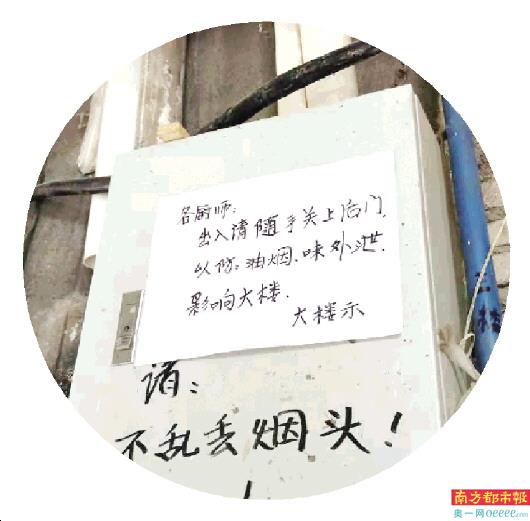 各厨师:
出入请随手关上后门.
以防:油烟.味外泄.
影响大楼.
大楼示
请:
不乱丢烟头!
楼
南方都市报
奥一网oeeee.com